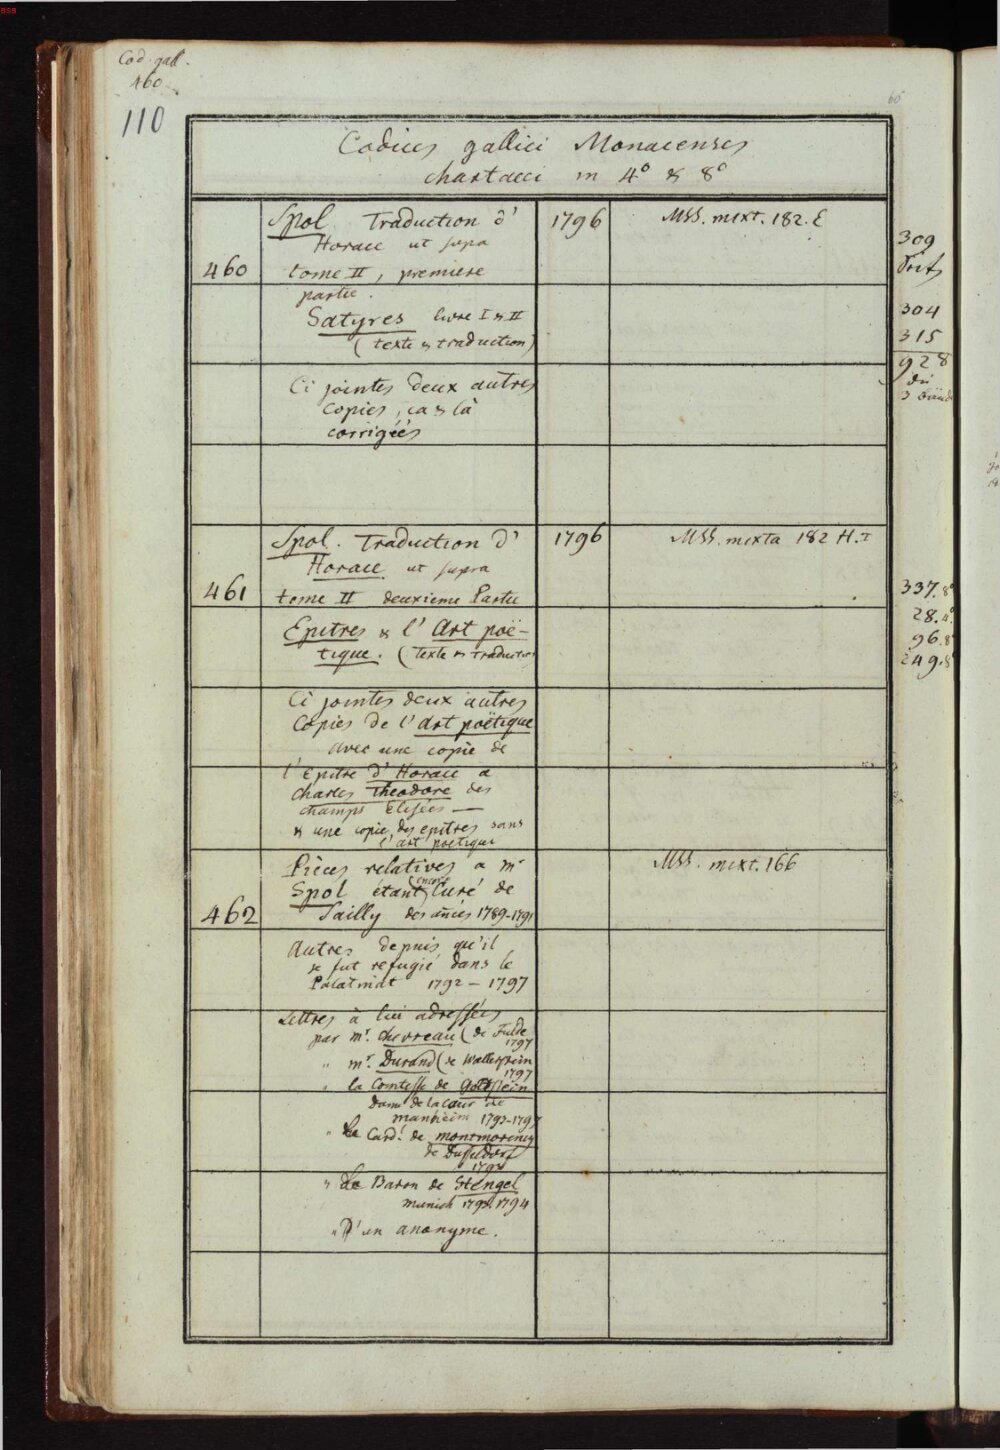 Cod. gall.
460
110
60
Codices gallici Monacenses
chartacei in 4° & 8°
Spol. Traduction d'
Horace ut supra
460
tome II, premiere
partie.
Satyres livre I & II
(texte & traduction)
1796
MSS. mixt. 182. E
309
304
315
928
Ci jointes deux autres
copies, ca & là
corrigées
Spol. Traduction d'
Horace ut supra
461
tome II deuxieme Partie
1796
MSS. mixta 182 H. I
Epitres & l'Art poë-
tique. (texte & traduction
337. 8°
28. 4°
96. 8°
249. 8°
Ci jointes deux autres
Copies de l'Art poëtique
avec une copie de
l'Epitre d'Horace a
Charles Theodore des
champs Elisées —
& une copie des epitres sans
l'art poetique
Pièces relatives a mr
Spol étant encore Curé de
462
Sailly des anées 1789-1791
MSS. mixt. 166
Autres depuis qu'il
se fut refugié dans le
Palatinat 1792 - 1797
Lettres à lui adressées
par mr. Chevreau (de Fulde
1797
" mr. Durand (de Wallerstein
1797
" la Comtesse de Goldstein
dame de la cour de
Manheim 1793-1797
" Le Card.l de Montmorency
de Dusseldorf
" Le Baron de Stengel
Munich 1793. 1794
" D'un anonyme.